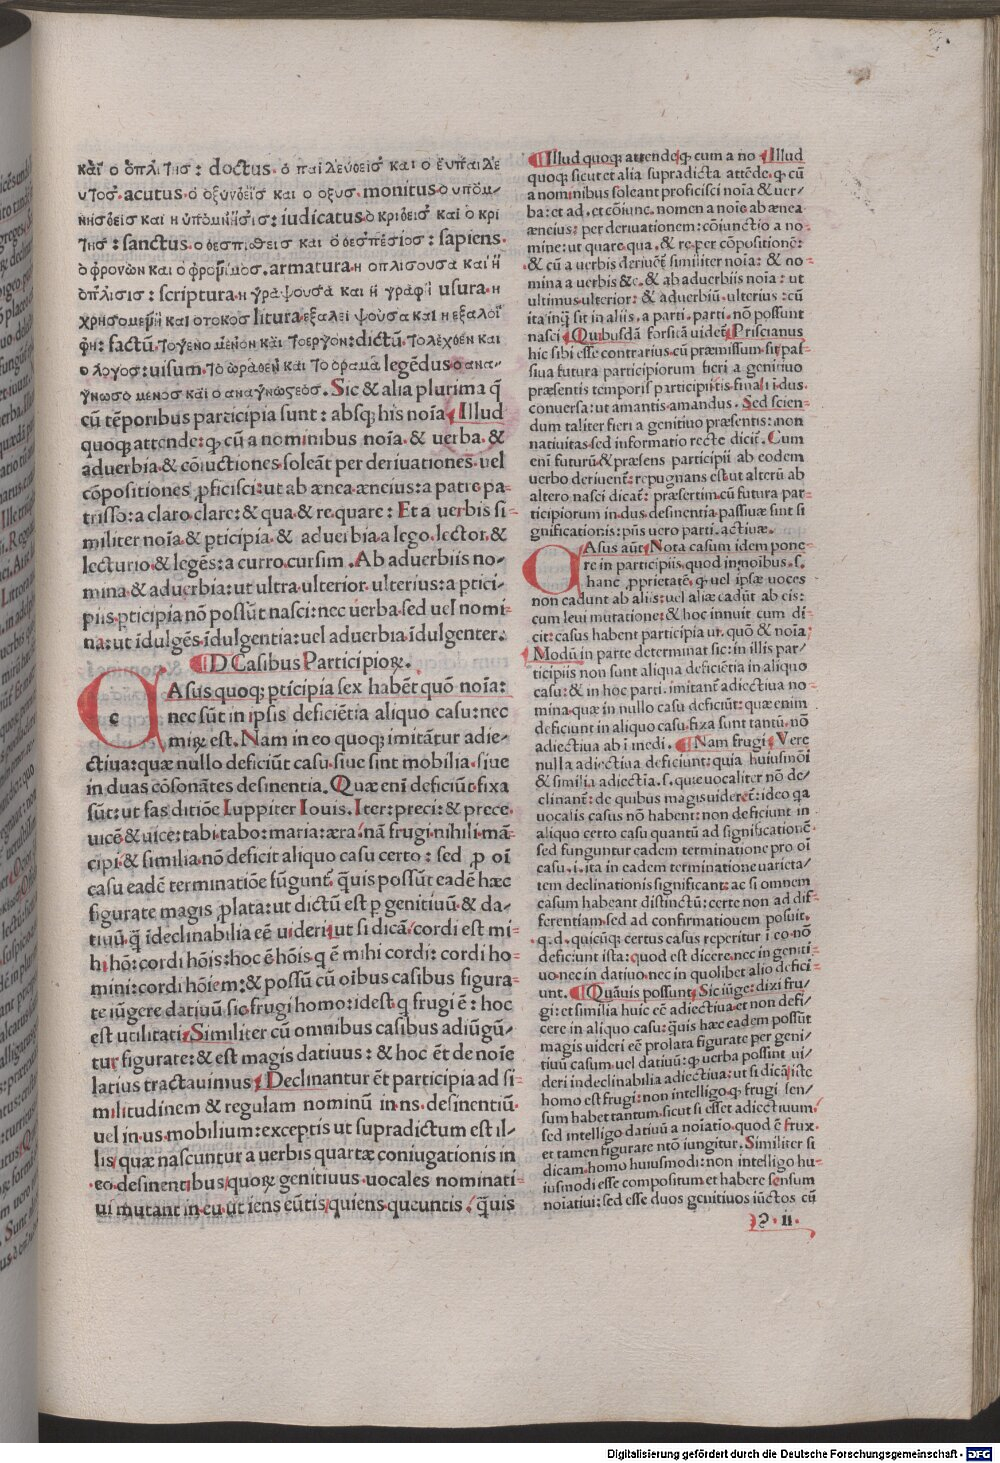 καὶ ὁ ὁπλίτησ: doctus. ὁ παιδευθεὶσ καὶ ὁ ἐυπαίδε
υτοσ. acutus. ὁ ὀξυνθεὶσ καὶ ὁ οξυσ. monitus ὁ υπόμ⸗
νησθεὶσ καὶ η ὑπόμνησισ: iudicatus ὁ κριθεισ καὶ ὁ κρι
τησ: sanctus. ο θεσπισθεισ και ὁ θεσπέσιοσ: sapiens.
ὁ φρονῶν και ο φρονιμοσ. armatura. η οπλισουσα και ἡ
ὁπλισισ: scriptura. η γραψουσα καὶ ἡ γραφὴ usura. η
χρησομενη και οτοκοσ litura. εξαλειψουσα και η εξαλοι
φη: factū. το γενομενον και το εργον: dictū. το λεχθεν και
ο λογοσ: uisum. το ὡραθεν και το όραμα legēdus ο ανα⸗
γνωσομενοσ και ο αναγνωστεοσ. Sic & alia plurima q̄
cū tēporibus participia sunt: absq; his noīa. Illud
quoq; attende: ꝙ cū a nominibus noīa. & uerba. &
aduerbia. & cōiuctiones. soleāt per deriuationes. uel
cōpositiones ꝓficisci: ut ab ænea. æncius: a patre pa⸗
trisso: a claro clare: & qua & re quare: Et a uerbis si⸗
militer noīa. & pticipia. & aduerbia a lego. lector. &
lecturio. & legēs: a curro. cursim. Ab aduerbiis no⸗
mina. & aduerbia: ut ultra. ulterior. ulterius: a ptici⸗
piis. pticipia nō possūt nasci: nec uerba. sed uel nomi⸗
na: ut idulgēs. idulgentia: uel aduerbia idulgenter.
D Casibus Participioꝝ.
c
CAsus quoq; pticipia sex habēt quō noīa:
nec sūt in ipsis deficiētia aliquo casu: nec
miꝝ est. Nam in eo quoq; imitātur adie⸗
ctiua: quæ nullo deficiūt casu. siue sint mobilia. siue
in duas cōsonātes desinentia. Quæ eni deficiūt. fixa
sūt: ut fas ditiōe Iuppiter Iouis. Iter: preci: & prece.
uicē & uice: tabi. tabo: maria: æra. nā frugi. nihili. mā⸗
cipi. & similia nō deficit aliquo casu certo: sed ꝓ oī
casu eadē terminatiōe fūgunt. q̄uis possūt eadē hæc
figurate magis ꝓlata: ut dictū est p genitiuū. & da⸗
tiuū. q̄ ideclinabilia eē uideri. ut si dicā. cordi est mi⸗
hi hō: cordi hōis: hoc ē hōis q̄ ē mihi cordi: cordi ho⸗
mini: cordi hōiem: & possū cū oibus casibus figura⸗
te iūgere datiuū sic. frugi homo: idest q̄ frugi ē: hoc
est utilitati. Similiter cū omnibus casibus adiūgū⸗
tur figurate: & est magis datiuus: & hoc ēt de noīe
latius tractauimus. Declinantur ēt participia ad si⸗
militudinem & regulam nominū in. ns. desinentiū.
uel in. us. mobilium: exceptis ut supradictum est il⸗
lis. quæ nascuntur a uerbis quartæ coniugationis in
.eo. desinentibus. quoꝝ genitiuus. uocales nominati⸗
ui mutant in. eu. ut iens eūtis. quiens queuntis. q̄uis
Illud quoq; attende ꝙ cum a no. Illud
quoq; sicut et alia supradicta attēde. ꝙ. cū
a nominibus soleant proficisci noīa & uer⸗
ba: et ad. et cōiunc. nomen a noīe ab ænea
æneius: per deriuationem: cōiunctio a no⸗
mine: ut quare qua. & re. per cōpositionē:
& cū a uerbis deriuēt similiter noīa: & no⸗
mina a uerbis &c. & ab aduerbiis noīa: ut
ultimus. ulterior: & aduerbiū. ulterius: cū
ita inq̄ sit in aliis. a parti. parti. nō possunt
nasci. Quibusdā forsitā uidet. Priscianus
hic sibi esse contrarius. cū præmissum sit. pas⸗
siua futura participiorum fieri a genitiuo
præsentis temporis participii. tis. finali. i. dus.
conuersa: ut amantis. amandus. Sed scien⸗
dum taliter fieri a genitiuo præsentis: non
natiuitas. sed informatio recte dicit. Cum
eni futurū. & præsens participii ab eodem
uerbo deriuent: repugnans est. ut alterū ab
altero nasci dicat: præsertim. cū futura par⸗
ticipiorum in. dus. desinentia. passiuæ sunt si
gnificationis: pñs uero parti. actiuæ.
CAsus aūt. Nota casum idem pone⸗
re in participiis. quod in noibus. s.
hanc ꝓprietatē. ꝙ uel ipsæ uoces
non cadunt ab aliis: uel aliæ cadūt ab eis:
cum leui mutatione: & hoc innuit cum di⸗
cit: casus habent participia ut. quō & noīa.
Modū in parte determinat sic: in illis par⸗
ticipiis non sunt aliqua deficiētia in aliquo
casu: & in hoc parti. imitant adiectiua no⸗
mina. quæ in nullo casu deficiūt: quæ enim
deficiunt in aliquo casu. fixa sunt tantū. nō
adiectiua ab i medi. Nam frugi. Vere
nulla adiectiua deficiunt: quia huiusmōi
& similia adiectia. s. quæ uocaliter nō de⸗
clinant: de quibus magis uideret: ideo qa
uocalis casus nō habent: non deficiunt in
aliquo certo casu quantū ad significationē.
sed funguntur eadem terminatione pro oi
casu. i. ita in eadem terminatione uarieta⸗
tem declinationis significant: ac si omnem
casum habeant distinctū: certe non ad dif⸗
ferentiam. sed ad confirmationem posuit.
.q. d. quicūq; certus casus reperitur i eo nō
deficiunt ista: quod est dicere. nec in geniti⸗
uo nec in datiuo. nec in quolibet alio defici⸗
unt. Quāuis possunt. Sic iūge: dixi fru⸗
gi: et similia huic eē adiectiua. et non defi⸗
cere in aliquo casu: q̄uis hæc eadem possūt
magis uideri eē prolata figurate per geni⸗
tiuū casum. uel datiuū: ꝙ uerba possint ui⸗
deri indeclinabilia adiectiua: ut si dicā. iste
homo est frugi: non intelligo. ꝙ. frugi sen⸗
sum habet tantum. sicut si esset adiectiuum.
sed intelligo datiuū a noiatio. quod ē frux.
et tamen figurate ntō iungitur. Similiter si
dicam. homo huiusmodi: non intelligo hu⸗
iusmodi esse compositum et habere sensum
noiatiui: sed esse duos genitiuos iūctos cū
S. ii.
Digitalisierung gefördert durch die Deutsche Forschungsgemeinschaft - DFG